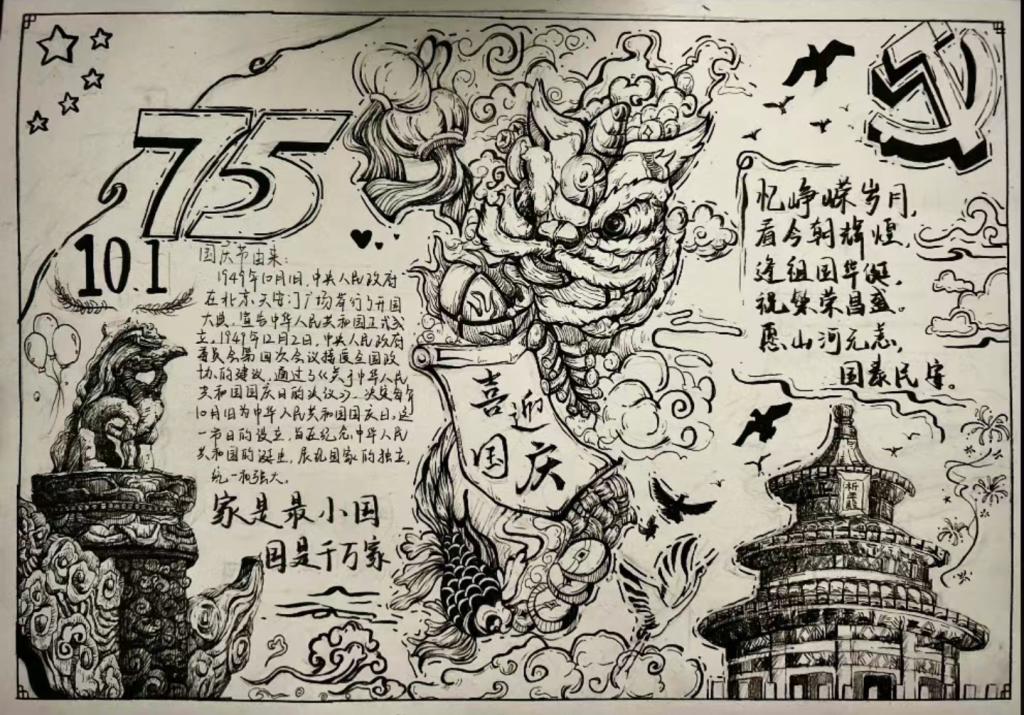 75
10.1
国庆节由来：
1949年10月1日，中央人民政府
在北京天安门广场举行了开国
大典，宣告中华人民共和国正式成
立。1949年12月2日，中央人民政府
委员会第四次会议接受全国政
协的建议，通过了《关于中华人民
共和国国庆日的决议》，决定每年
10月1日为中华人民共和国国庆日，这
一节日的设立，旨在纪念中华人民
共和国的诞生，展现国家的独立，
统一和强大。
家是最小国
国是千万家
喜迎
国庆
忆峥嵘岁月，
看今朝辉煌，
逢祖国华诞，
祝繁荣昌盛。
愿山河无恙，
国泰民安。
祈年殿